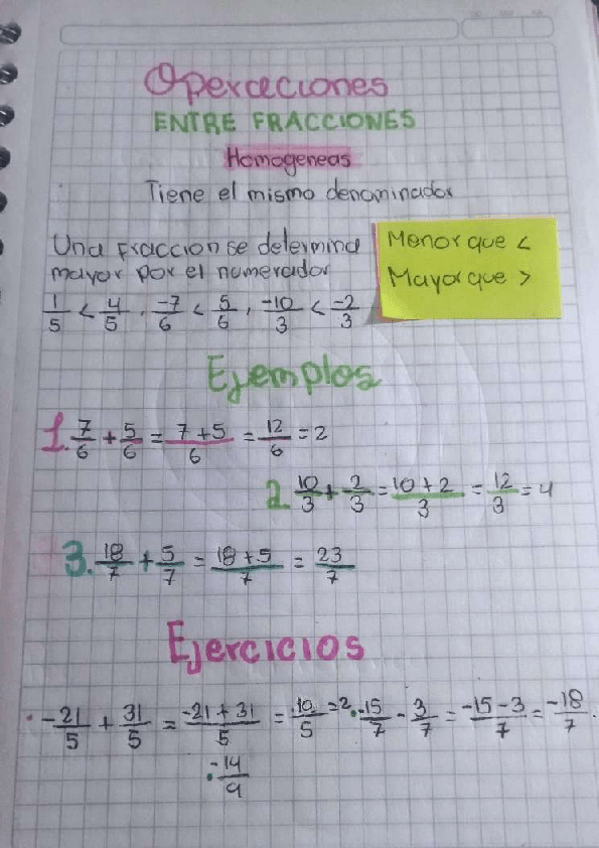 Operaciones
ENTRE FRACCIONES
Homogeneas
Tiene el mismo denominador
Una fraccion se determina
mayor por el numerador
Menor que <
Mayor que >
1/5 < 4/5 . -7/6 < 5/6 , -10/3 < -2/3
Ejemplos
1. 7/6 + 5/6 = 7+5/6 = 12/6 = 2
2. 10/3 + 2/3 = 10+2/3 = 12/3 = 4
3. 18/7 + 5/7 = 18+5/7 = 23/7
Ejercicios
• -21/5 + 31/5 = -21+31/5 = 10/5 = 2 • -15/7 - 3/7 = -15-3/7 = -18/7
• -14/9